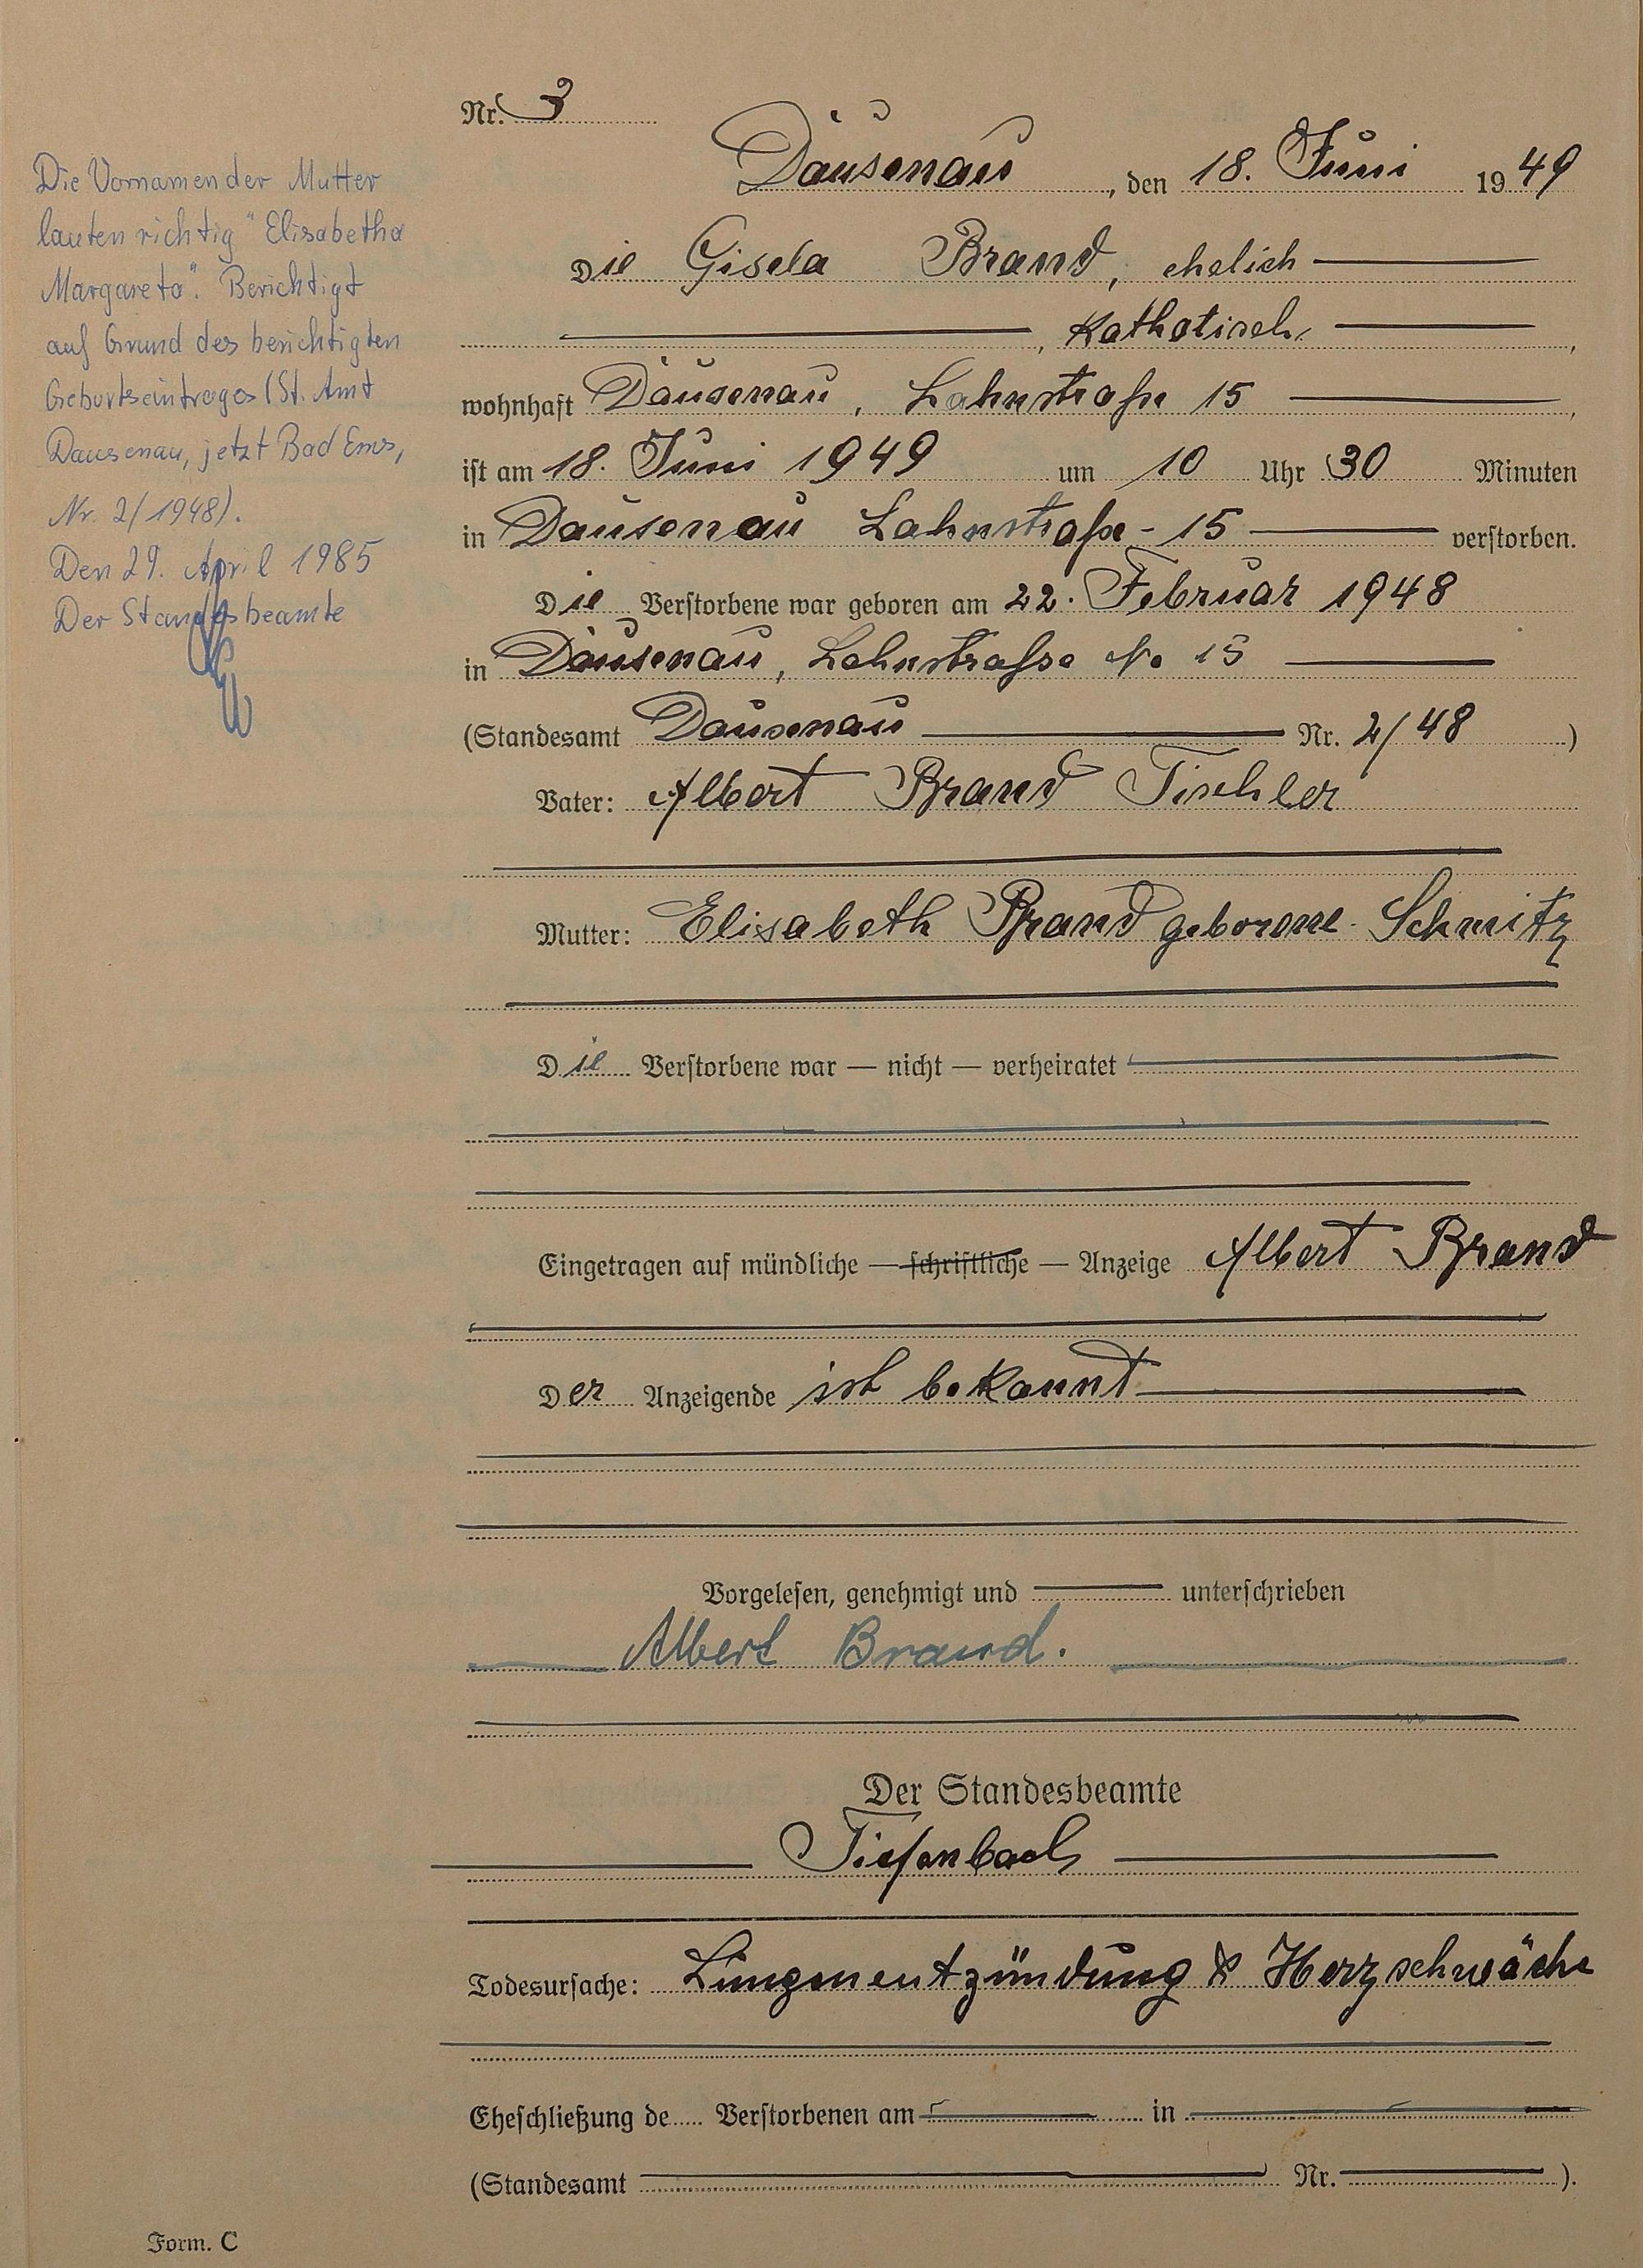 Nr. 3
Dausenau, den 18. Juni 1949
Die Gisela Brand, ehelich
, Katholisch,
wohnhaft Dausenau, Lahnstraße 15,
ist am 18. Juni 1949 um 10 Uhr 30 Minuten
in Dausenau Lahnstraße - 15 verstorben.
Die Verstorbene war geboren am 22. Februar 1948
in Dausenau, Lahnstraße No 15
(Standesamt Dausenau Nr. 2/48)
Vater: Albert Brand Tischler
Mutter: Elisabeth Brand geborene Schmitz
Die Verstorbene war — nicht — verheiratet
Eingetragen auf mündliche — schriftliche — Anzeige Albert Brand
Der Anzeigende ist bekannt
Vorgelesen, genehmigt und unterschrieben
Albert Brand.
Der Standesbeamte
Tiefenbach
Todesursache: Lungenentzündung & Herzschwäche
Eheschließung de..... Verstorbenen am in
(Standesamt Nr. ).
Form. C
Die Vornamen der Mutter
lauten richtig "Elisabetha
Margareta". Berichtigt
auf Grund des berichtigten
Geburtseintrages (St. Amt
Dausenau, jetzt Bad Ems,
Nr. 2/1948).
Den 29. April 1985
Der Standesbeamte